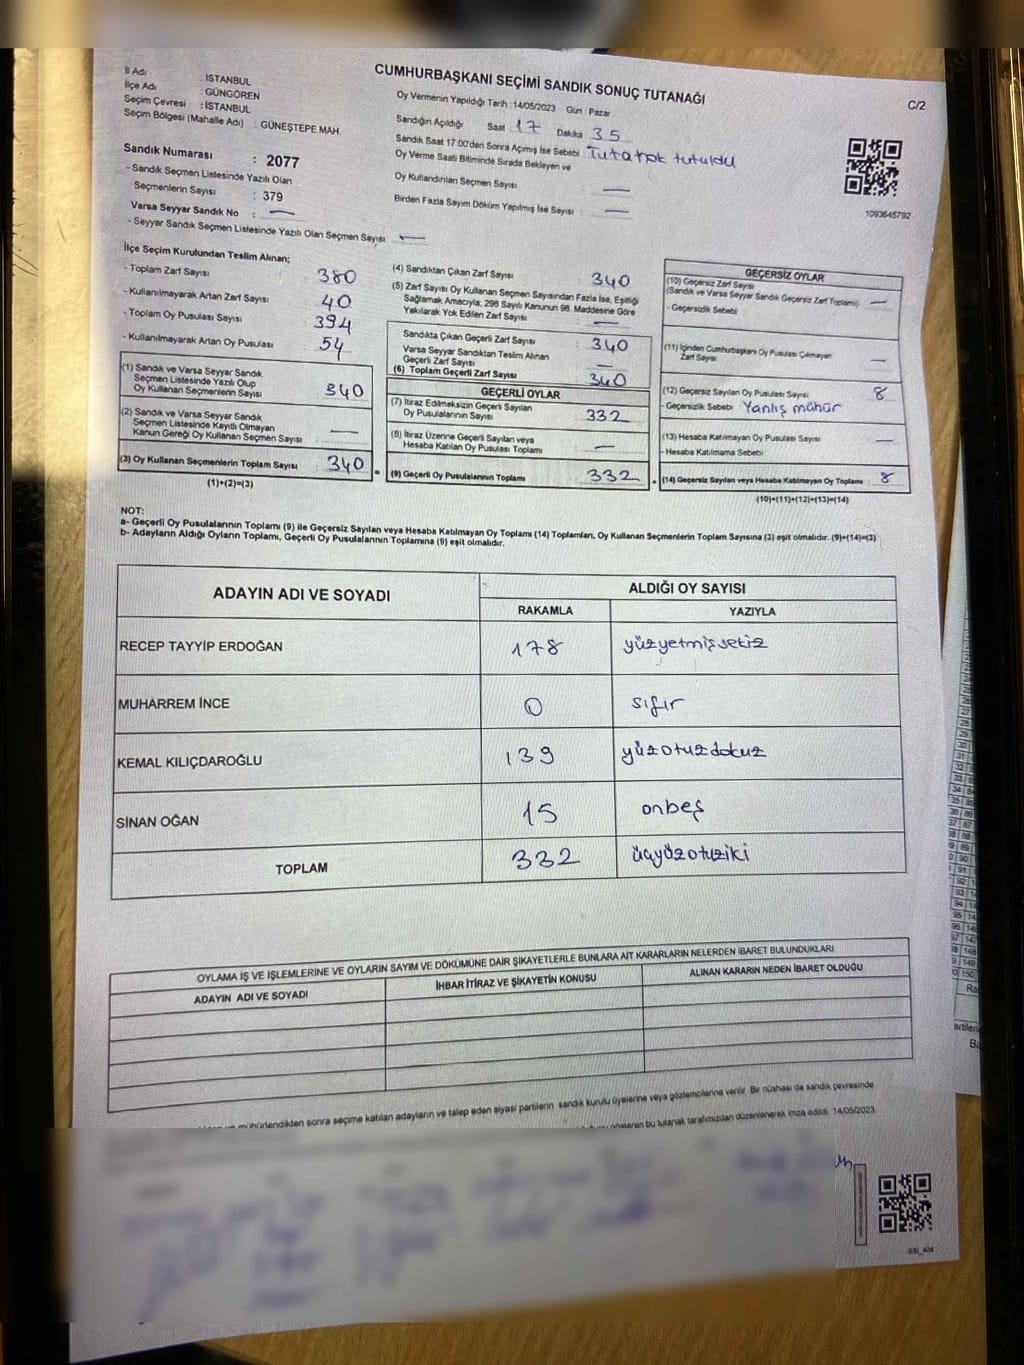 CUMHURBAŞKANI SEÇİMİ SANDIK SONUÇ TUTANAĞI
C/2
İl Adı : İSTANBUL
İlçe Adı : GÜNGÖREN
Seçim Çevresi : İSTANBUL
Seçim Bölgesi (Mahalle Adı) : GÜNEŞTEPE MAH
Sandık Numarası : 2077
- Sandık Seçmen Listesinde Yazılı Olan
Seçmenlerin Sayısı : 379
Varsa Seyyar Sandık No : —
- Seyyar Sandık Seçmen Listesinde Yazılı Olan Seçmen Sayısı : —
Oy Vermenin Yapıldığı Tarih : 14/05/2023 Gün : Pazar
Sandığın Açıldığı Saat : 17 Dakika : 35
Sandık Saat 17:00'den Sonra Açımış İse Sebebi : Tutanak tutuldu
Oy Verme Saati Bitiminde Sırada Bekleyen ve
Oy Kullandırılan Seçmen Sayısı : —
Birden Fazla Sayım Döküm Yapılmış İse Sayısı : —
1093645792
İlçe Seçim Kurulundan Teslim Alınan;
- Toplam Zarf Sayısı : 380
- Kullanılmayarak Artan Zarf Sayısı : 40
- Toplam Oy Pusulası Sayısı : 394
- Kullanılmayarak Artan Oy Pusulası : 54
(1) Sandık ve Varsa Seyyar Sandık
Seçmen Listesinde Yazılı Olup
Oy Kullanan Seçmenlerin Sayısı : 340
(2) Sandık ve Varsa Seyyar Sandık
Seçmen Listesinde Kayıtlı Olmayan
Kanun Gereği Oy Kullanan Seçmen Sayısı : —
(3) Oy Kullanan Seçmenlerin Toplam Sayısı : 340
(1)+(2)=(3)
(4) Sandıktan Çıkan Zarf Sayısı : 340
(5) Zarf Sayısı Oy Kullanan Seçmen Sayısından Fazla İse, Eşitliği
Sağlamak Amacıyla; 298 Sayılı Kanunun 98. Maddesine Göre
Yakılarak Yok Edilen Zarf Sayısı : —
Sandıkta Çıkan Geçerli Zarf Sayısı : 340
Varsa Seyyar Sandıktan Teslim Alınan
Geçerli Zarf Sayısı : —
(6) Toplam Geçerli Zarf Sayısı : 340
GEÇERLİ OYLAR
(7) İtiraz Edilmeksizin Geçerli Sayılan
Oy Pusulalarının Sayısı : 332
(8) İtiraz Üzerine Geçerli Sayılan veya
Hesaba Katılan Oy Pusulası Toplamı : —
(9) Geçerli Oy Pusulalarının Toplamı : 332
GEÇERSİZ OYLAR
(10) Geçersiz Zarf Sayısı
(Sandık ve Varsa Seyyar Sandık Geçersiz Zarf Toplamı) : —
- Geçersizlik Sebebi
(11) İçinden Cumhurbaşkanı Oy Pusulası Çıkmayan
Zarf Sayısı : —
(12) Geçersiz Sayılan Oy Pusulası Sayısı : 8
- Geçersizlik Sebebi : Yanlış mühür
(13) Hesaba Katılmayan Oy Pusulası Sayısı : —
- Hesaba Katılmama Sebebi
(14) Geçersiz Sayılan veya Hesaba Katılmayan Oy Toplamı : 8
(10)+(11)+(12)+(13)=(14)
NOT:
a- Geçerli Oy Pusulalarının Toplamı (9) ile Geçersiz Sayılan veya Hesaba Katılmayan Oy Toplamı (14) Toplamları, Oy Kullanan Seçmenlerin Toplam Sayısına (3) eşit olmalıdır. (9)+(14)=(3)
b- Adayların Aldığı Oyların Toplamı, Geçerli Oy Pusulalarının Toplamına (9) eşit olmalıdır.
ADAYIN ADI VE SOYADI
ALDIĞI OY SAYISI
RAKAMLA YAZIYLA
RECEP TAYYİP ERDOĞAN 178 yüzyetmişsekiz
MUHARREM İNCE 0 sıfır
KEMAL KILIÇDAROĞLU 139 yüzotuzdokuz
SİNAN OĞAN 15 onbeş
TOPLAM 332 üçyüzotuziki
OYLAMA İŞ VE İŞLEMLERİNE VE OYLARIN SAYIM VE DÖKÜMÜNE DAİR ŞİKAYETLERLE BUNLARA AİT KARARLARIN NELERDEN İBARET BULUNDUKLARI
ADAYIN ADI VE SOYADI İHBAR İTİRAZ VE ŞİKAYETİN KONUSU ALINAN KARARIN NEDEN İBARET OLDUĞU
mühürlendikten sonra seçime katılan adayların ve talep eden siyasi partilerin sandık kurulu üyelerine veya gözlemcilerine verilir. Bir nüshası da sandık çevresinde
gösteren bu tutanak tarafımızdan düzenlenerek imza edildi. 14/05/2023